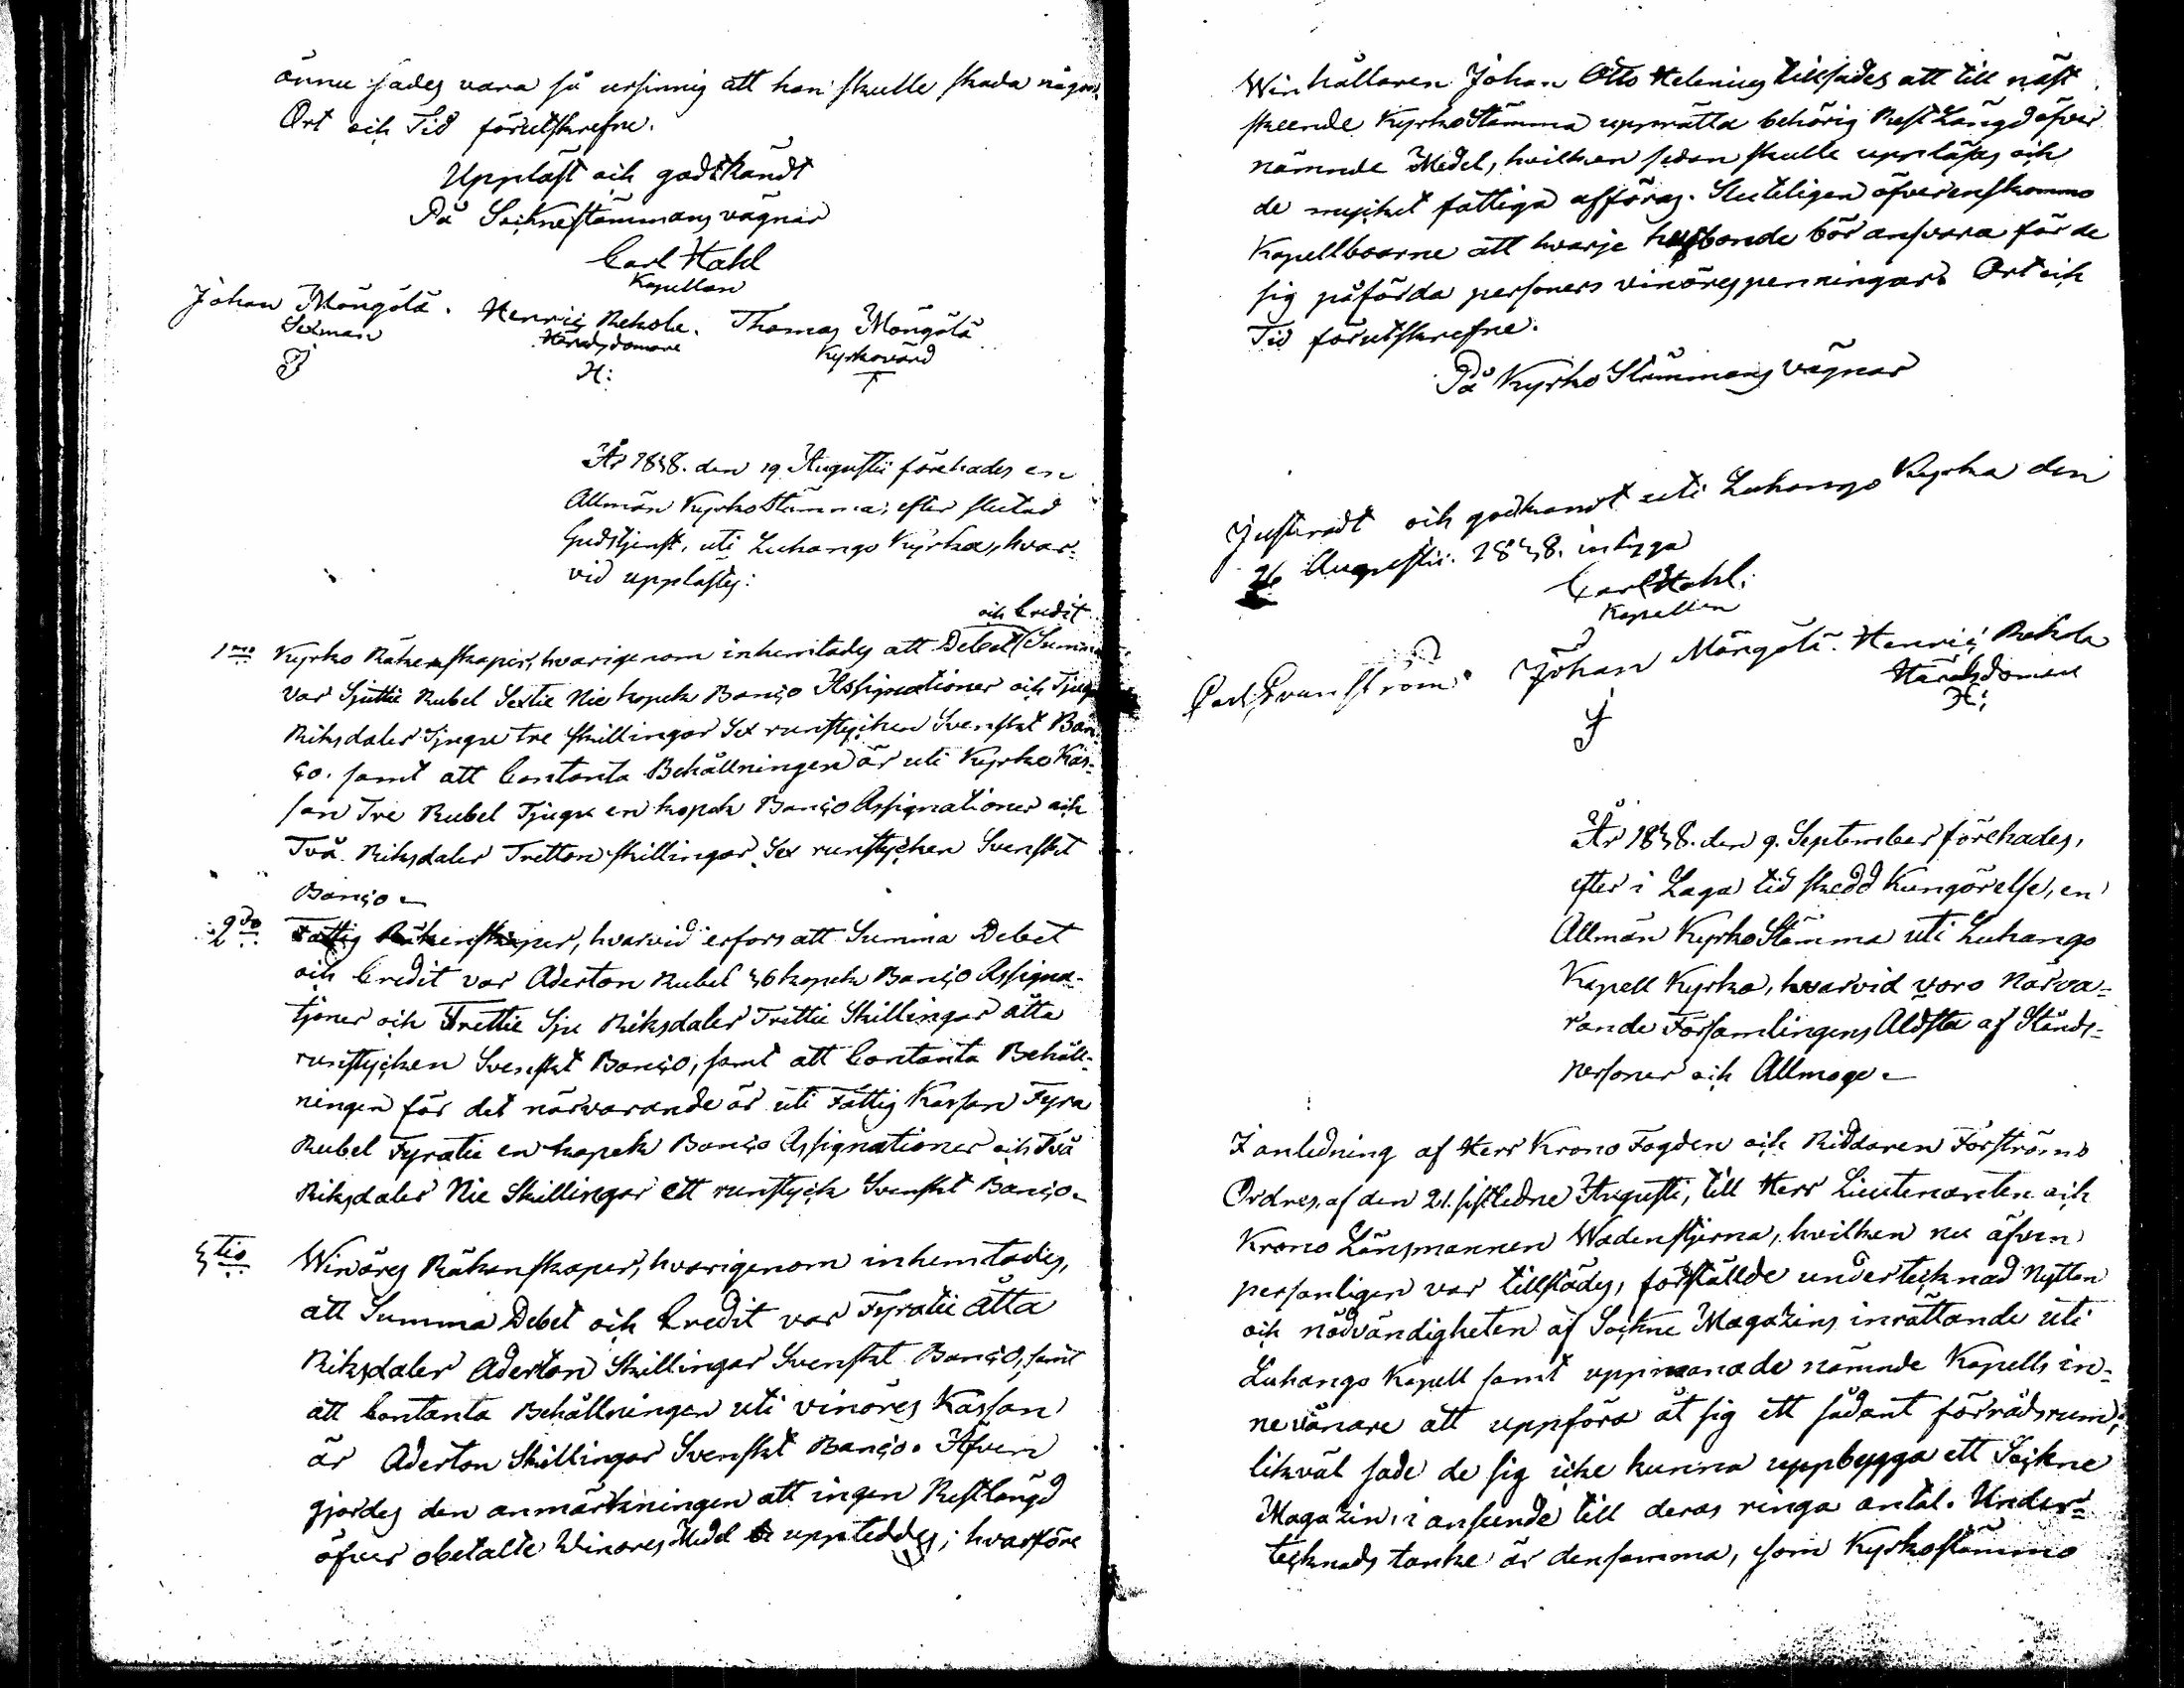 ännu sades vara så ursinnig att han skulle skada någon.
Ort och Tid förutskrefne.
Uppläst och godtkändt
På Socknestämmans vägnar
Carl Hahl
Kapellan
Johan Mängölä. Henric Rekola. Thomas Mängölä
Sexman Häradsdomare Kyrkovärd
J H: T
År 1838. den 19 Augustii förehades en
Allmän KyrkoStämma, efter slutad
Gudstjenst, uti Luhango Kyrka, hvar-
vid upplästes:
och Credit
1mo Kyrko Räkenskaper, hvarigenom inhemtades att Debet Summa
var Sjuttie Rubel Sextie Nie kopek Banco Assignationer och Tjugu
Riksdaler Tjugu tre skillingar Sex runstycken Svenskt Ban-
co. samt att Contanta Behållningen är uti Kyrko Kas-
san Tre Rubel Tjugu en kopek Banco Assignationer och
Två Riksdaler Tretton skillingar Sex runstycken Svenskt
Banco.
2do Fattig Räkenskaper, hvarvid erfors att Summa Debet
och Credit var Aderton Rubel 36 kopek Banco Assigna-
tjoner och Trettie Sju Riksdaler Trettie Skillingar åtta
runstycken Svenskt Banco, samt att Contanta Behåll-
ningen för det närvarande är uti Fattig Kassan Fyra
Rubel Fyratie en kopek Banco Assignationer och Två
Riksdaler Nie Skillingar ett runstyck Svenskt Banco.
3tio Winöres Räkenskaper, hvarigenom inhemtades,
att Summa Debet och Credit var Fyratie åtta
Riksdaler Aderton Skillingar Svenskt Banco, samt
att Contanta Behållningen uti vinöres Kassan
är Aderton Skillingar Svenskt Banco. Äfven
gjordes den anmärkningen att ingen Restlängd
öfver obetalte Winöres Medel uppteddes; hvarföre
Winhållaren Johan Otto Helenius tillsades att till näst
skeende KyrkoStämma upprätta behörig Rest Längd öfver
nämnde Medel, hvilken sedan skulle uppläsas och
de mycket fattiga afföras. Sluteligen öfverenskommo
Kapellboarne att hvarje husbonde bör ansvara för de
sig påförda personers vinörespenningar. Ort och
Tid förutskrefne.
På KyrkoStämmans vägnar
Justeradt och godkändt uti Luhango Kyrka den
26 Augustii. 1838. intyga
Carl Hahl.
Kapellan
Carl Granström. Johan Mängölä. Henric Rekola
Häradsdomare
J H:
År 1838. den 9. September förehades,
efter i Laga tid skedd Kungörelse, en
Allmän KyrkoStämma uti Luhango
Kapell Kyrka, hvarvid voro Närva-
rande Församlingens Äldsta af Stånds-
personer och Allmoge.
I anledning af Herr Krono Fogden och Riddaren Forströms
Ordres, af den 21. sistledne Augusti, till Herr Lieutenanten och
Krono Länsmannen Wadenstjerna, hvilken nu äfven
personligen var tillstädes, förställde undertecknad Nyttan
och nödvändigheten af Sockne Magazins inrättande uti
Luhango Kapell samt uppmanade nämnde Kapells in-
nevånare att uppföra åt sig ett sådant förrådsrum;
likväl sade de sig icke kunna uppbygga ett Sockne
Magazin, i anseende till deras ringa antal. Under-
tecknads tanke är densamma, som Kyrkostämmo